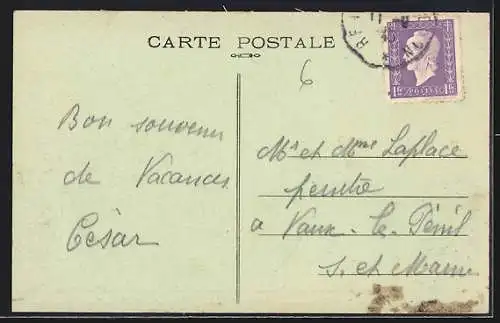 CARTE POSTALE
6
Bon souvenir
de Vacances
César
Mr et Mme Laplace
peintre
a Vaux-le-Pénil
S. et Marne
1F POSTES 1F